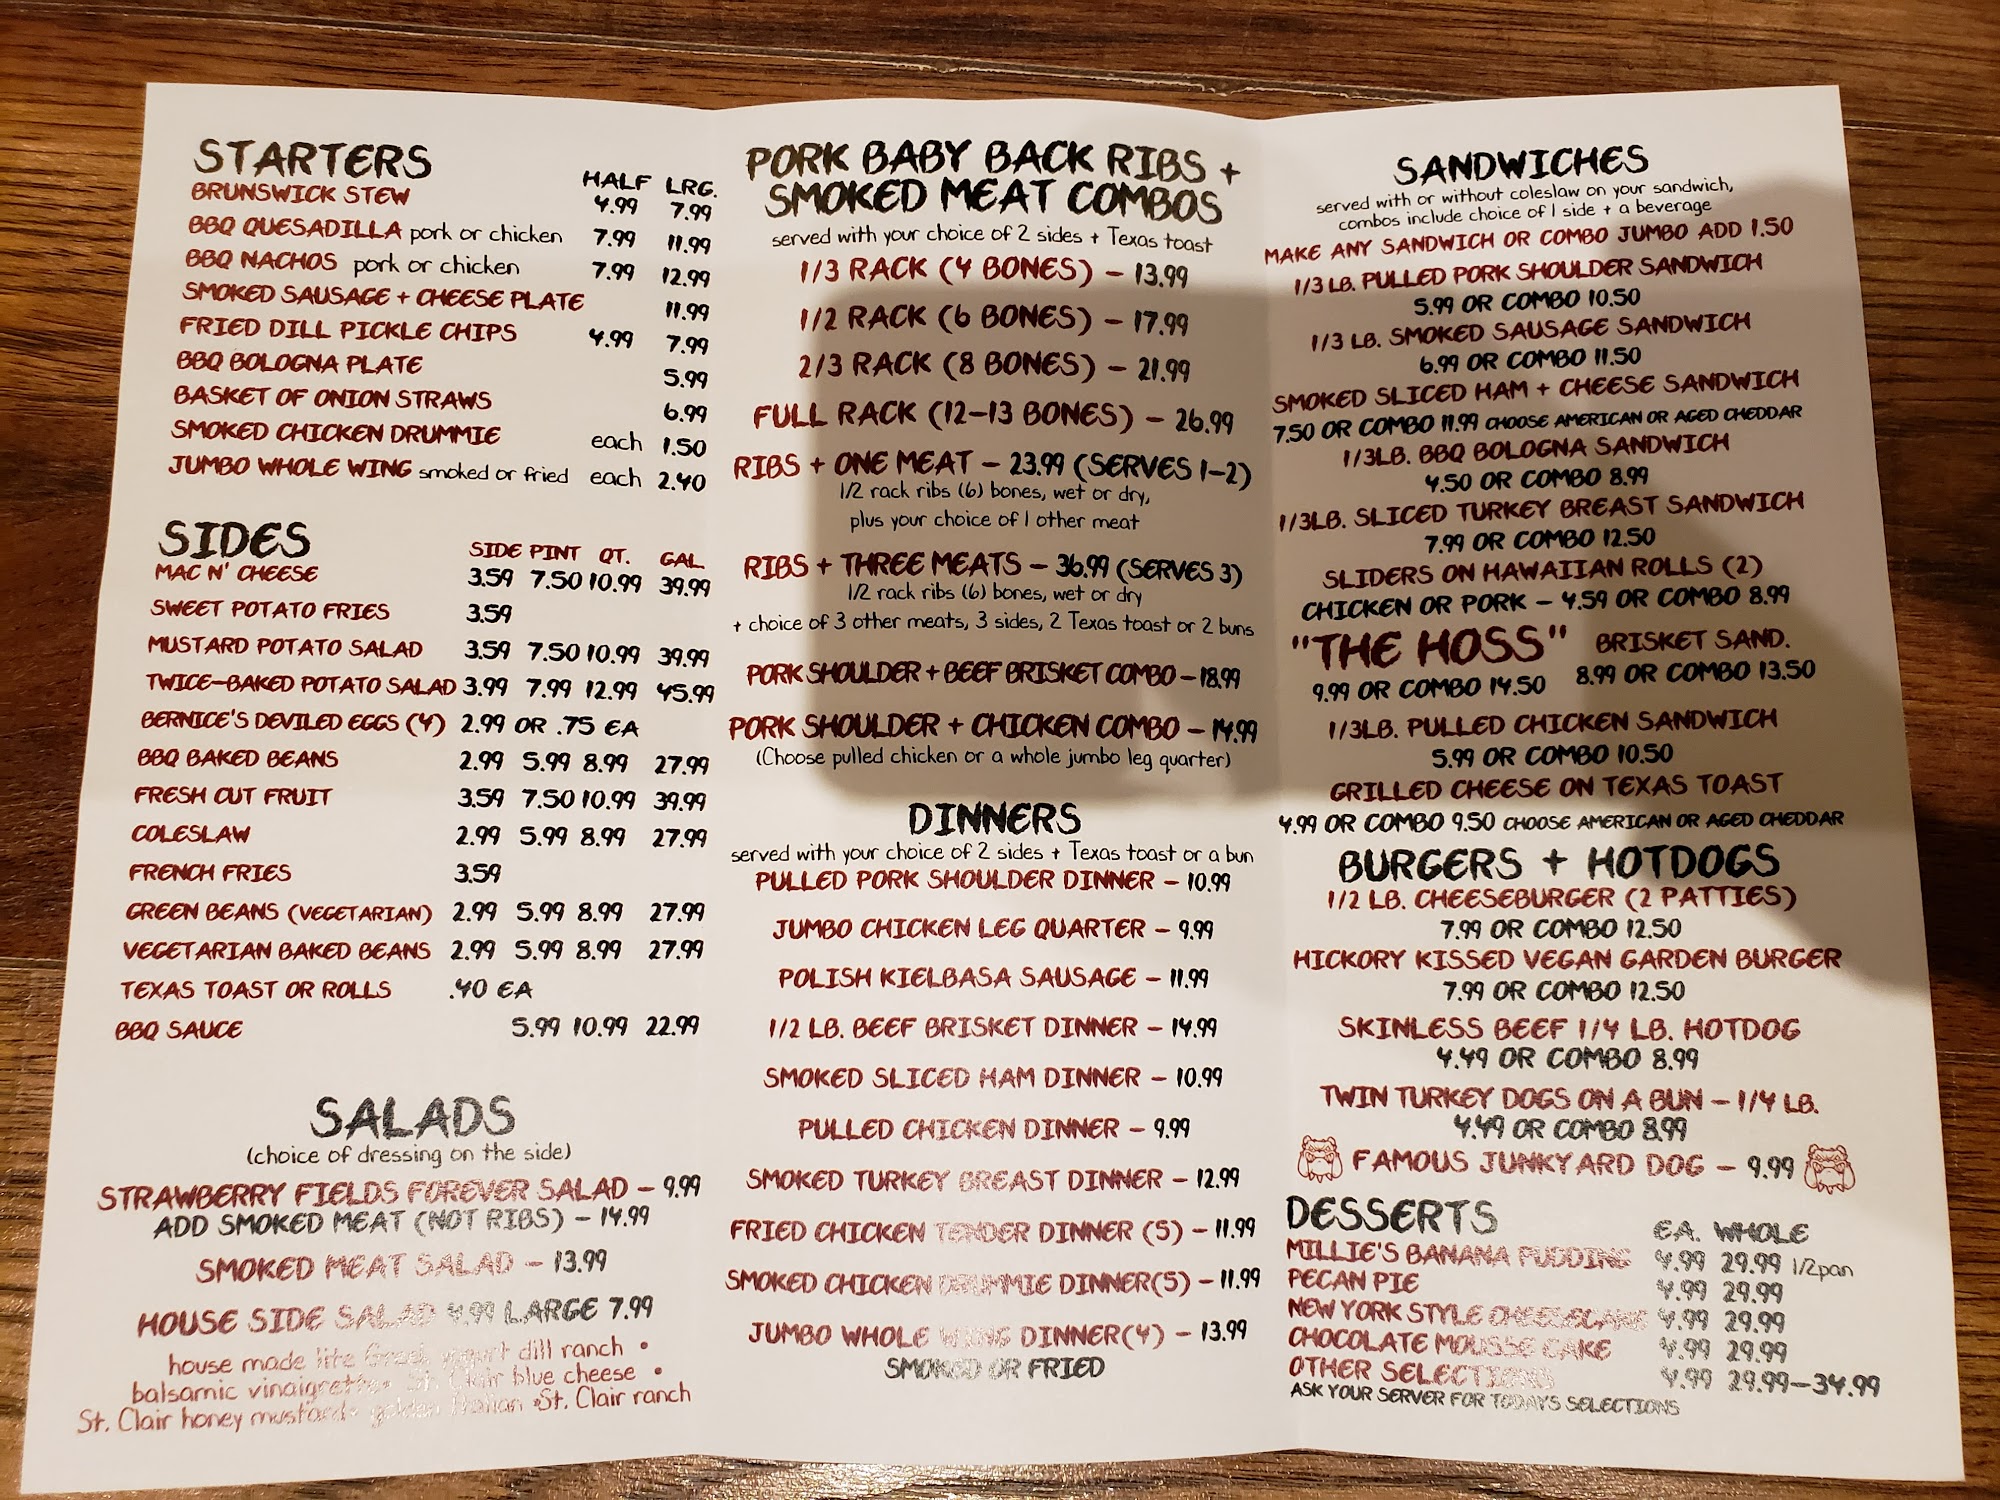 STARTERS
HALF LRG.
BRUNSWICK STEW 4.99 7.99
BBQ QUESADILLA pork or chicken 7.99 11.99
BBQ NACHOS pork or chicken 7.99 12.99
SMOKED SAUSAGE + CHEESE PLATE 11.99
FRIED DILL PICKLE CHIPS 4.99 7.99
BBQ BOLOGNA PLATE 5.99
BASKET OF ONION STRAWS 6.99
SMOKED CHICKEN DRUMMIE each 1.50
JUMBO WHOLE WING smoked or fried each 2.40
SIDES
SIDE PINT QT. GAL
MAC N' CHEESE 3.59 7.50 10.99 39.99
SWEET POTATO FRIES 3.59
MUSTARD POTATO SALAD 3.59 7.50 10.99 39.99
TWICE-BAKED POTATO SALAD 3.99 7.99 12.99 45.99
BERNICE'S DEVILED EGGS (4) 2.99 OR .75 EA
BBQ BAKED BEANS 2.99 5.99 8.99 27.99
FRESH CUT FRUIT 3.59 7.50 10.99 39.99
COLESLAW 2.99 5.99 8.99 27.99
FRENCH FRIES 3.59
GREEN BEANS (VEGETARIAN) 2.99 5.99 8.99 27.99
VEGETARIAN BAKED BEANS 2.99 5.99 8.99 27.99
TEXAS TOAST OR ROLLS .40 EA
BBQ SAUCE 5.99 10.99 22.99
SALADS
(choice of dressing on the side)
STRAWBERRY FIELDS FOREVER SALAD - 9.99
ADD SMOKED MEAT (NOT RIBS) - 14.99
SMOKED MEAT SALAD - 13.99
HOUSE SIDE SALAD 4.99 LARGE 7.99
house made lite Greek yogurt dill ranch •
balsamic vinaigrette • St. Clair blue cheese •
St. Clair honey mustard • golden Italian • St. Clair ranch
PORK BABY BACK RIBS +
SMOKED MEAT COMBOS
served with your choice of 2 sides + Texas toast
1/3 RACK (4 BONES) - 13.99
1/2 RACK (6 BONES) - 17.99
2/3 RACK (8 BONES) - 21.99
FULL RACK (12-13 BONES) - 26.99
RIBS + ONE MEAT - 23.99 (SERVES 1-2)
1/2 rack ribs (6) bones, wet or dry,
plus your choice of 1 other meat
RIBS + THREE MEATS - 36.99 (SERVES 3)
1/2 rack ribs (6) bones, wet or dry
+ choice of 3 other meats, 3 sides, 2 Texas toast or 2 buns
PORK SHOULDER + BEEF BRISKET COMBO - 18.99
PORK SHOULDER + CHICKEN COMBO - 14.99
(Choose pulled chicken or a whole jumbo leg quarter)
DINNERS
served with your choice of 2 sides + Texas toast or a bun
PULLED PORK SHOULDER DINNER - 10.99
JUMBO CHICKEN LEG QUARTER - 9.99
POLISH KIELBASA SAUSAGE - 11.99
1/2 LB. BEEF BRISKET DINNER - 14.99
SMOKED SLICED HAM DINNER - 10.99
PULLED CHICKEN DINNER - 9.99
SMOKED TURKEY BREAST DINNER - 12.99
FRIED CHICKEN TENDER DINNER (5) - 11.99
SMOKED CHICKEN DRUMMIE DINNER(5) - 11.99
JUMBO WHOLE WING DINNER(4) - 13.99
SMOKED OR FRIED
SANDWICHES
served with or without coleslaw on your sandwich,
combos include choice of 1 side + a beverage
MAKE ANY SANDWICH OR COMBO JUMBO ADD 1.50
1/3 LB. PULLED PORK SHOULDER SANDWICH
5.99 OR COMBO 10.50
1/3 LB. SMOKED SAUSAGE SANDWICH
6.99 OR COMBO 11.50
SMOKED SLICED HAM + CHEESE SANDWICH
7.50 OR COMBO 11.99 CHOOSE AMERICAN OR AGED CHEDDAR
1/3LB. BBQ BOLOGNA SANDWICH
4.50 OR COMBO 8.99
1/3LB. SLICED TURKEY BREAST SANDWICH
7.99 OR COMBO 12.50
SLIDERS ON HAWAIIAN ROLLS (2)
CHICKEN OR PORK - 4.59 OR COMBO 8.99
"THE HOSS" BRISKET SAND.
9.99 OR COMBO 14.50 8.99 OR COMBO 13.50
1/3LB. PULLED CHICKEN SANDWICH
5.99 OR COMBO 10.50
GRILLED CHEESE ON TEXAS TOAST
4.99 OR COMBO 9.50 CHOOSE AMERICAN OR AGED CHEDDAR
BURGERS + HOTDOGS
1/2 LB. CHEESEBURGER (2 PATTIES)
7.99 OR COMBO 12.50
HICKORY KISSED VEGAN GARDEN BURGER
7.99 OR COMBO 12.50
SKINLESS BEEF 1/4 LB. HOTDOG
4.49 OR COMBO 8.99
TWIN TURKEY DOGS ON A BUN - 1/4 LB.
4.49 OR COMBO 8.99
FAMOUS JUNKYARD DOG - 9.99
DESSERTS
EA. WHOLE
MILLIE'S BANANA PUDDING 4.99 29.99 1/2pan
PECAN PIE 4.99 29.99
NEW YORK STYLE CHEESECAKE 4.99 29.99
CHOCOLATE MOUSSE CAKE 4.99 29.99
OTHER SELECTIONS 4.99 29.99-34.99
ASK YOUR SERVER FOR TODAY'S SELECTIONS